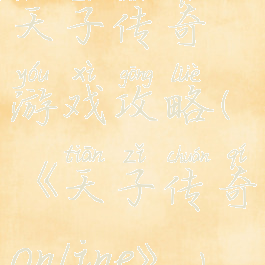 天子传奇
yóu xì gōng lüè
游戏攻略(
tiān zǐ chuán qí
《天子传奇
online》